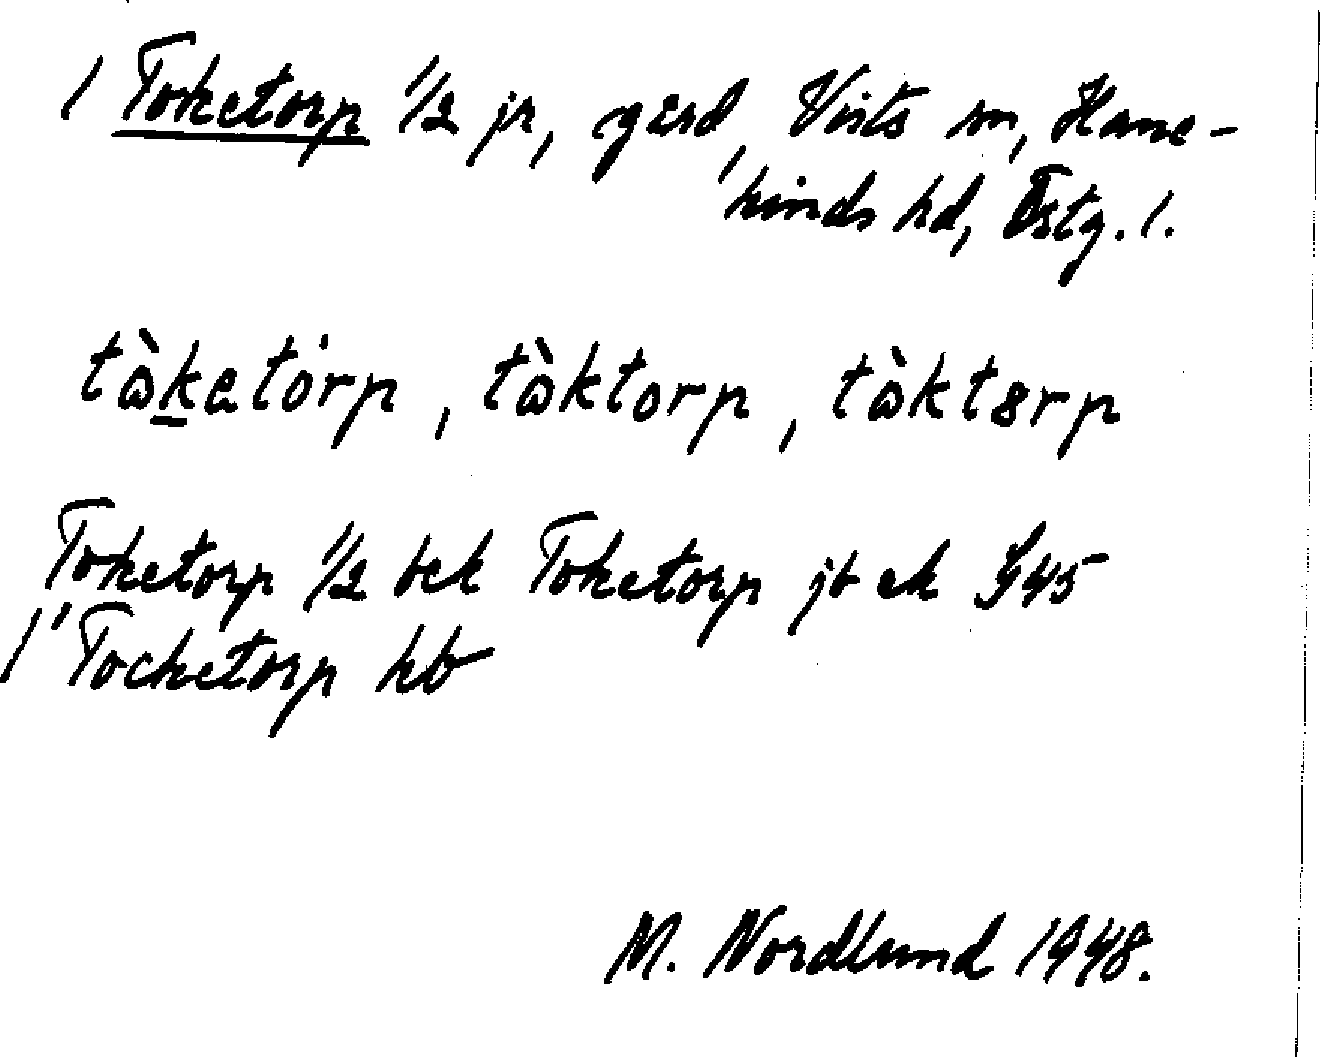 / Toketorp 1/2 jr, gård, Vists sn, Hane-
kinds hd, Östg. l.
tàketórp, tàktorp, tàkt8rp
Toketorp 1/2 bek Toketorp jb ek S45
/" Tocketorp kb
M. Nordlund 1948.